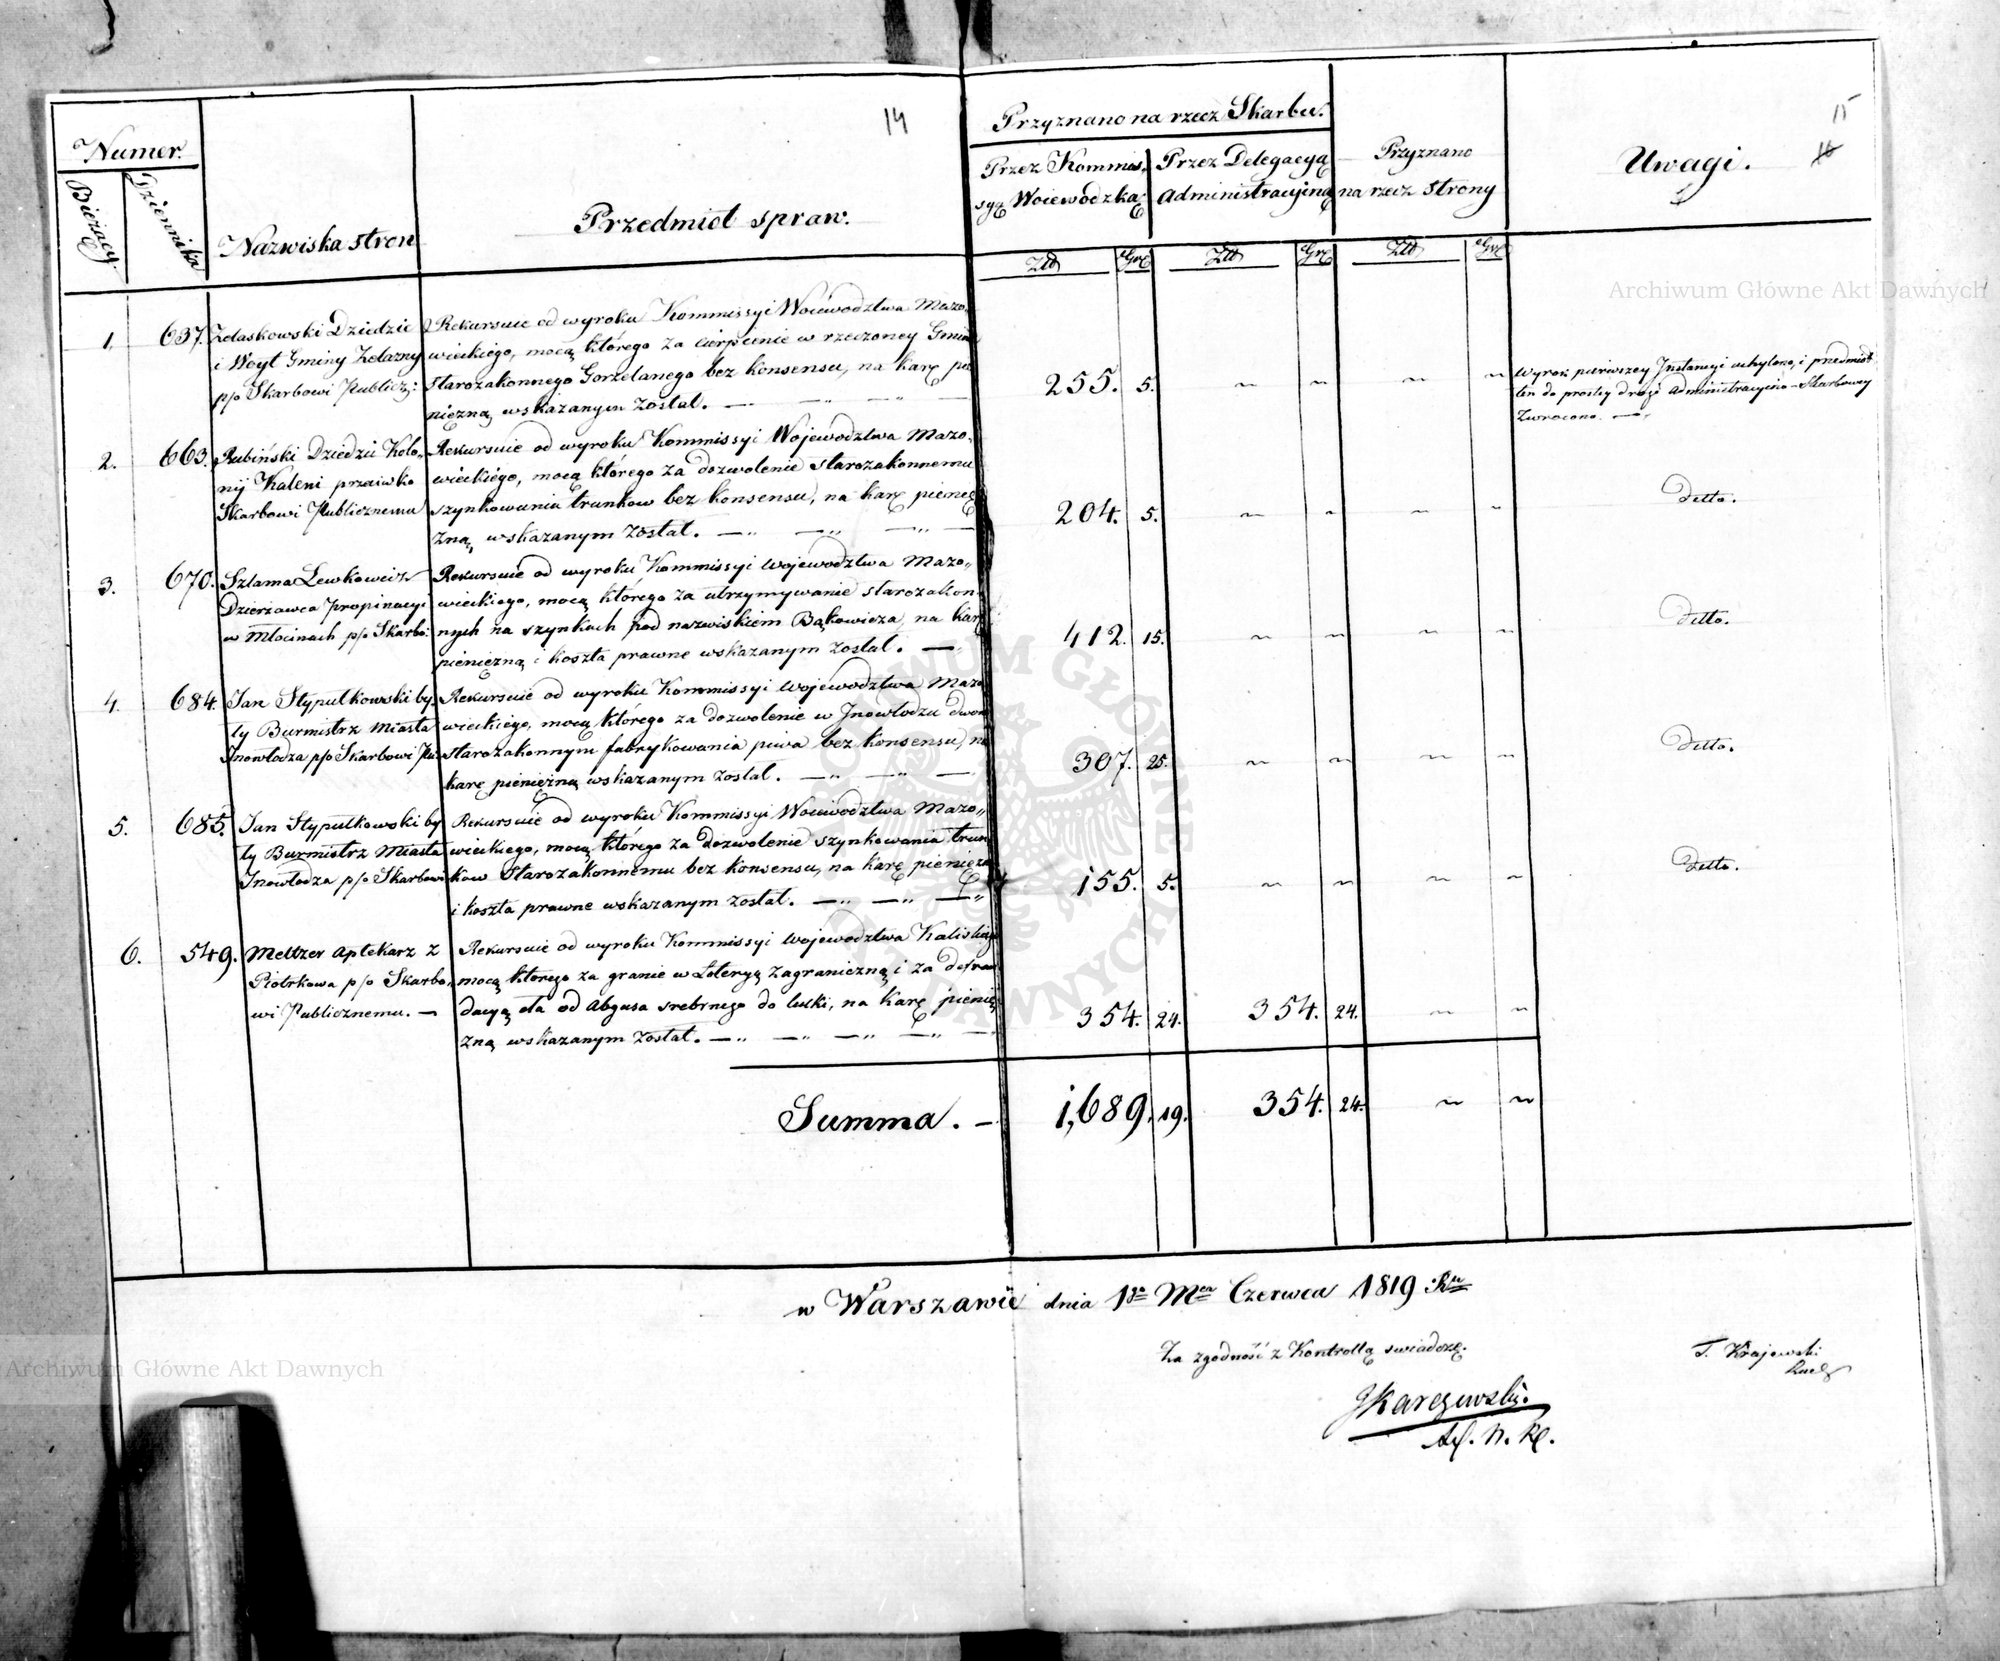 14
15
Numer.
Bieżący.
Dziennika
Nazwiska stron
Przedmiot spraw.
Przyznano na rzecz Skarbu.
Przez Kommis,
syą Woiewodzką
Przez Delegacyą
Administracyjną
Przyznano
na rzecz strony
Uwagi.
Złł Gr Złł Gr Złł Gr
1. 637.
Dziedzic
i Woyt Gminy
p/o Skarbowi Publicz:
Rekursuie od wyroku Kommissyi Woiewodztwa Mazo,,
wieckiego, mocą którego za cierpienie w rzeczoney Gminie
starozakonnego Gorzelanego bez konsensu, na karę pie
niężną wskazanym został. —
255. 5. ~ ~ ~ ~
Wyrok pierwszey Instancyi uchylono, i przedmiot
ten do prostey drogi Administracyino-Skarbowey
Zwrocono. —
2. 663.
Rubiński Dziedzic Kolo,,
nij Kaleni przeciwko
Skarbowi Publicznemu
Rekursuie od wyroku Kommissyi Wojewodztwa Mazo,,
wieckiego, mocą którego za dozwolenie starozakonnemu
szynkowania trunkow bez konsensu, na karę pienię
żną, wskazanym został. — „ — „ — „ —
204. 5. ~ ~ ~ ~
detto.
3. 670.
Szlama Lewkowicz
Dzierżawca Propinacyi
w Młocinach p/o Skarbo:
Rekursuie od wyroku Kommissyi Wojewodztwa Mazo,,
wieckiego, mocą którego za utrzymywanie starozakon,
nych na szynkach pod nazwiskiem Bąkowicza, na karę
pieniężną i koszta prawne wskazanym został. —
412. 15. ~ ~ ~ ~
detto.
4. 684.
Jan Stypułkowski by,
ły Burmistrz Miasta
Inowłodza p/o Skarbowi Pu:
Rekursuie od wyroku Kommissyi Wojewodztwa Mazo
wieckiego, mocą którego za dozwolenie w Inowłodzu dwom
starozakonnym fabrykowania piwa bez konsensu, na
karę pieniężną wskazanym został. — „ — „ —
307. 25. ~ ~ ~ ~
detto.
5. 685.
Jan Stypułkowski by
ły Burmistrz Miasta
Inowłodza p/o Skarbowi
Rekursuie od wyroku Kommissyi Woiewodztwa Mazo,,
wieckiego, mocą którego za dozwolenie szynkowania trun
kow Starozakonnemu bez konsensu, na karę pieniężną
i koszta prawne wskazanym został. — „ — „ — „
155. 5. ~ ~ ~ ~
detto.
6. 549.
Meltzer Aptekarz z
Piotrkowa p/o Skarbo,
wi Publicznemu. —
Rekursuie od wyroku Kommissyi Wojewodztwa Kaliskiego
mocą którego za granie w Loteryą zagraniczną i za defrau
dacyą cła od Abgusa srebrnego do laski, na karę pienię
żną wskazanym został. — „ — „ — „ — „ —
354. 24. 354. 24. ~ ~
Summa. — 1,689. 19. 354. 24. ~ ~
w Warszawie dnia 1go Mca Czerwca 1819 Ru
Za zgodność z Kontrollą swiadczę.
T. Krajewski
Archiwum Główne Akt Dawnych
Archiwum Główne Akt Dawnych
ARCHIWUM GŁÓWNE AKT DAWNYCH